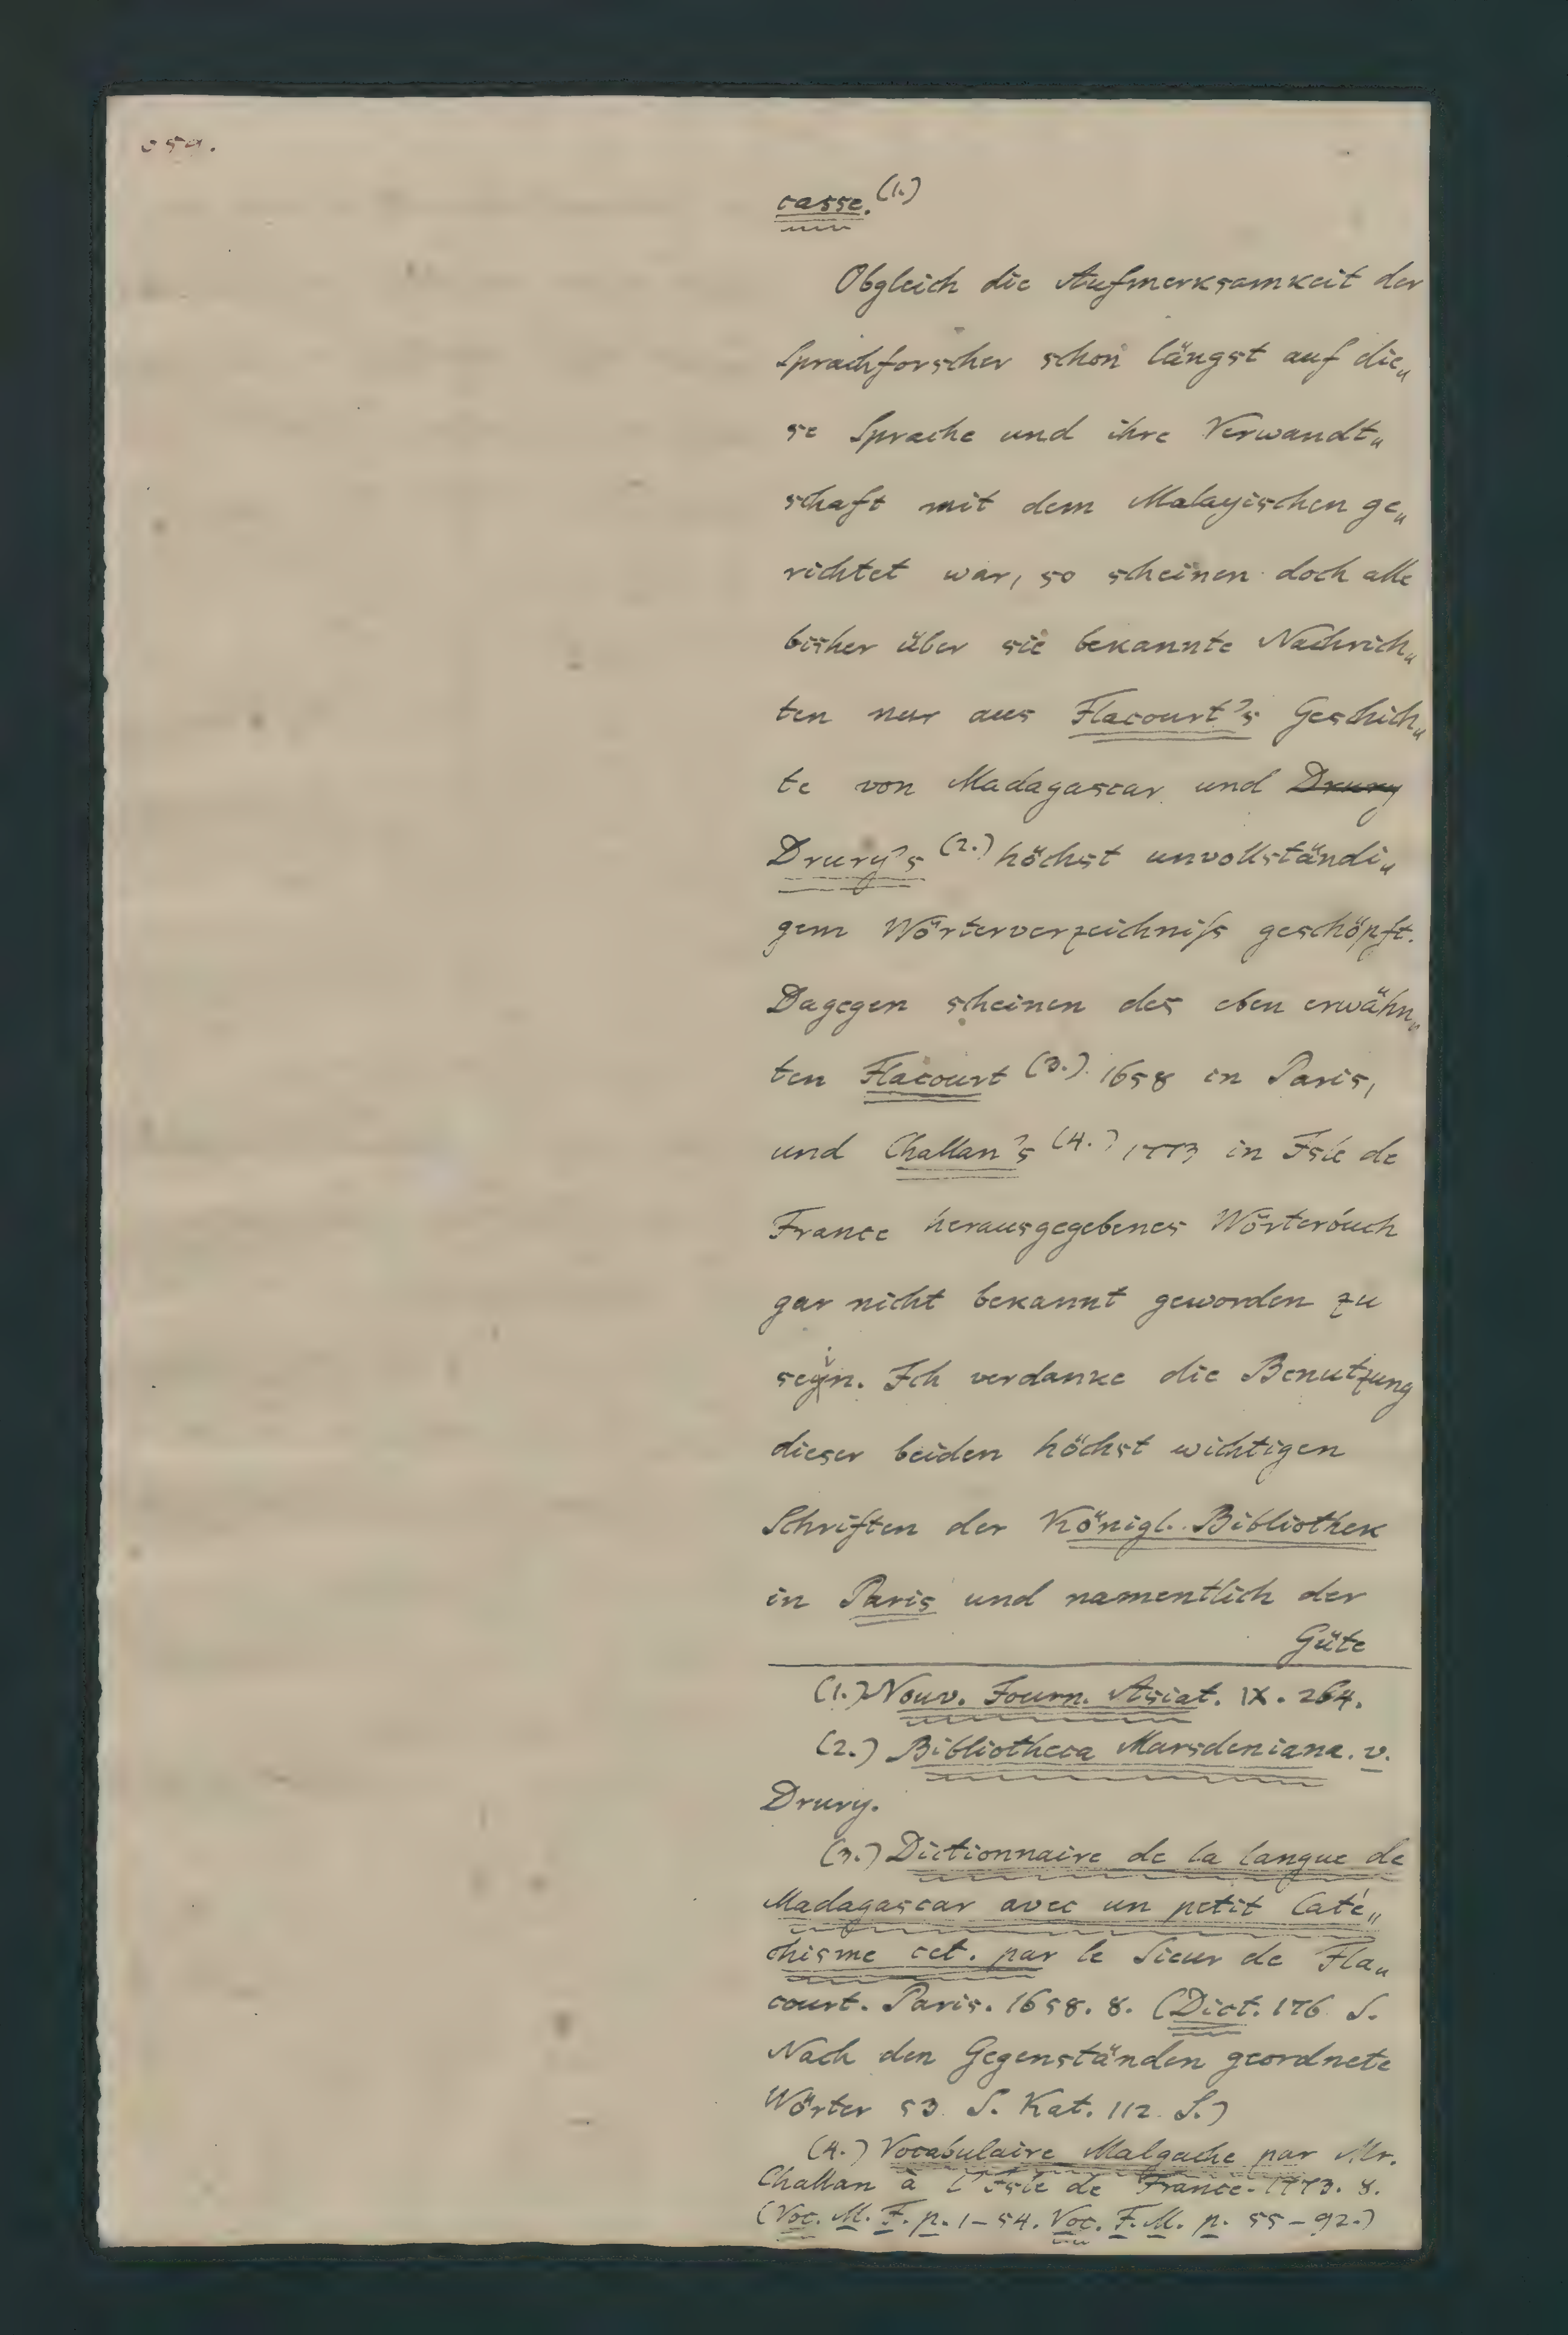 casse.(1.)
Obgleich die Aufmerksamkeit der
Sprachforscher schon längst auf die„
se Sprache und ihre Verwandt„
schaft mit dem Malayischen ge„
richtet war, so scheinen doch alle
bisher über sie bekannte Nachrich„
ten nur aus Flacourt's Geschich„
te von Madagascar und Drury
Drury's (2.) höchst unvollständi„
gem Wörterverzeichniſs geschöpft.
Dagegen scheinen des eben erwähn„
ten Flacourt (3.) 1658 in Paris,
und Challan's (4.) 1773 in Isle de
France herausgegebenes Wörterbuch
gar nicht bekannt geworden zu
seyn. Ich verdanke die Benutzung
dieser beiden höchst wichtigen
Schriften der Königl. Bibliothek
in Paris und namentlich der
Güte
(1.) Nouv. Journ. Asiat. IX. 264.
(2.) Bibliotheca Marsdeniana. v.
Drury.
(3.) Dictionnaire de la langue de
Madagascar avec un petit Caté„
chisme cet. par le Sieur de Fla„
court. Paris. 1658. 8. (Dict. 176 S.
Nach den Gegenständen geordnete
Wörter 53 S. Kat. 112 S.)
(4.) Vocabulaire Malgache par Mr.
Challan à l'Isle de France. 1773. 8.
(Voc. M. F. p. 1-54. Voc. F. M. p. 55-92.)